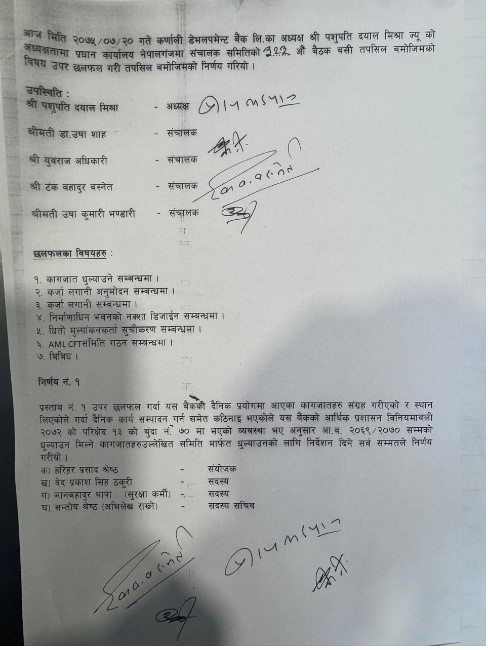 आज मिति २०७५/०७/२० गते कर्णाली डेभलपमेन्ट बैंक लि.का अध्यक्ष श्री पशुपति दयाल मिश्रा ज्यू को
अध्यक्षतामा प्रधान कार्यालय नेपालगंजमा संचालक समितिको ३२२ औं बैठक बसी तपसिल बमोजिमको
विषय उपर छलफल गरी तपसिल बमोजिमको निर्णय गरियो ।
उपस्थिति :
श्री पशुपति दयाल मिश्रा - अध्यक्ष
श्रीमती डा.उषा शाह - संचालक
श्री युवराज अधिकारी - संचालक
श्री टंक बहादुर बस्नेत - संचालक
श्रीमती उषा कुमारी भण्डारी - संचालक
छलफलका विषयहरु :
१. कागजात धुल्याउने सम्बन्धमा ।
२. कर्जा लगानी अनुमोदन सम्बन्धमा ।
३. कर्जा लगानी सम्बन्धमा ।
४. निर्माणाधिन भवनको नक्शा डिजाईन सम्बन्धमा ।
५. धितो मुल्यांकनकर्ता सुचीकरण सम्बन्धमा ।
६. AML CFTसमिति गठन सम्बन्धमा ।
७. बिबिध ।
निर्णय नं. १
प्रस्ताव नं. १ उपर छलफल गर्दा यस बैंकको दैनिक प्रयोगमा आएका कागजातहरु संग्रह गरीएको र स्थान
लिएकोले गर्दा दैनिक कार्य सम्पादन गर्न समेत कठिनाइ भएकोले यस बैंकको आर्थिक प्रशासन विनियमावली
२०७२ को परिछेद १३ को बुदा नं. ७० मा भएको व्यवस्था भए अनुसार आ.व. २०६९/२०७० सम्मको
धुल्याउन मिल्ने कागजातहरुउल्लेखित समिति मार्फत धुल्याउनको लागि निर्देशन दिने सर्व सम्मतले निर्णय
गरीयो ।
क) हरिहर प्रसाद श्रेष्ठ - संयोजक
ख) बेद प्रकाश सिंह ठकुरी - सदस्य
ग) मानबहादुर थापा (सुरक्षा कर्मी) - सदस्य
घ) सन्तोष श्रेष्ठ (अभिलेख राख्ने) - सदस्य सचिव